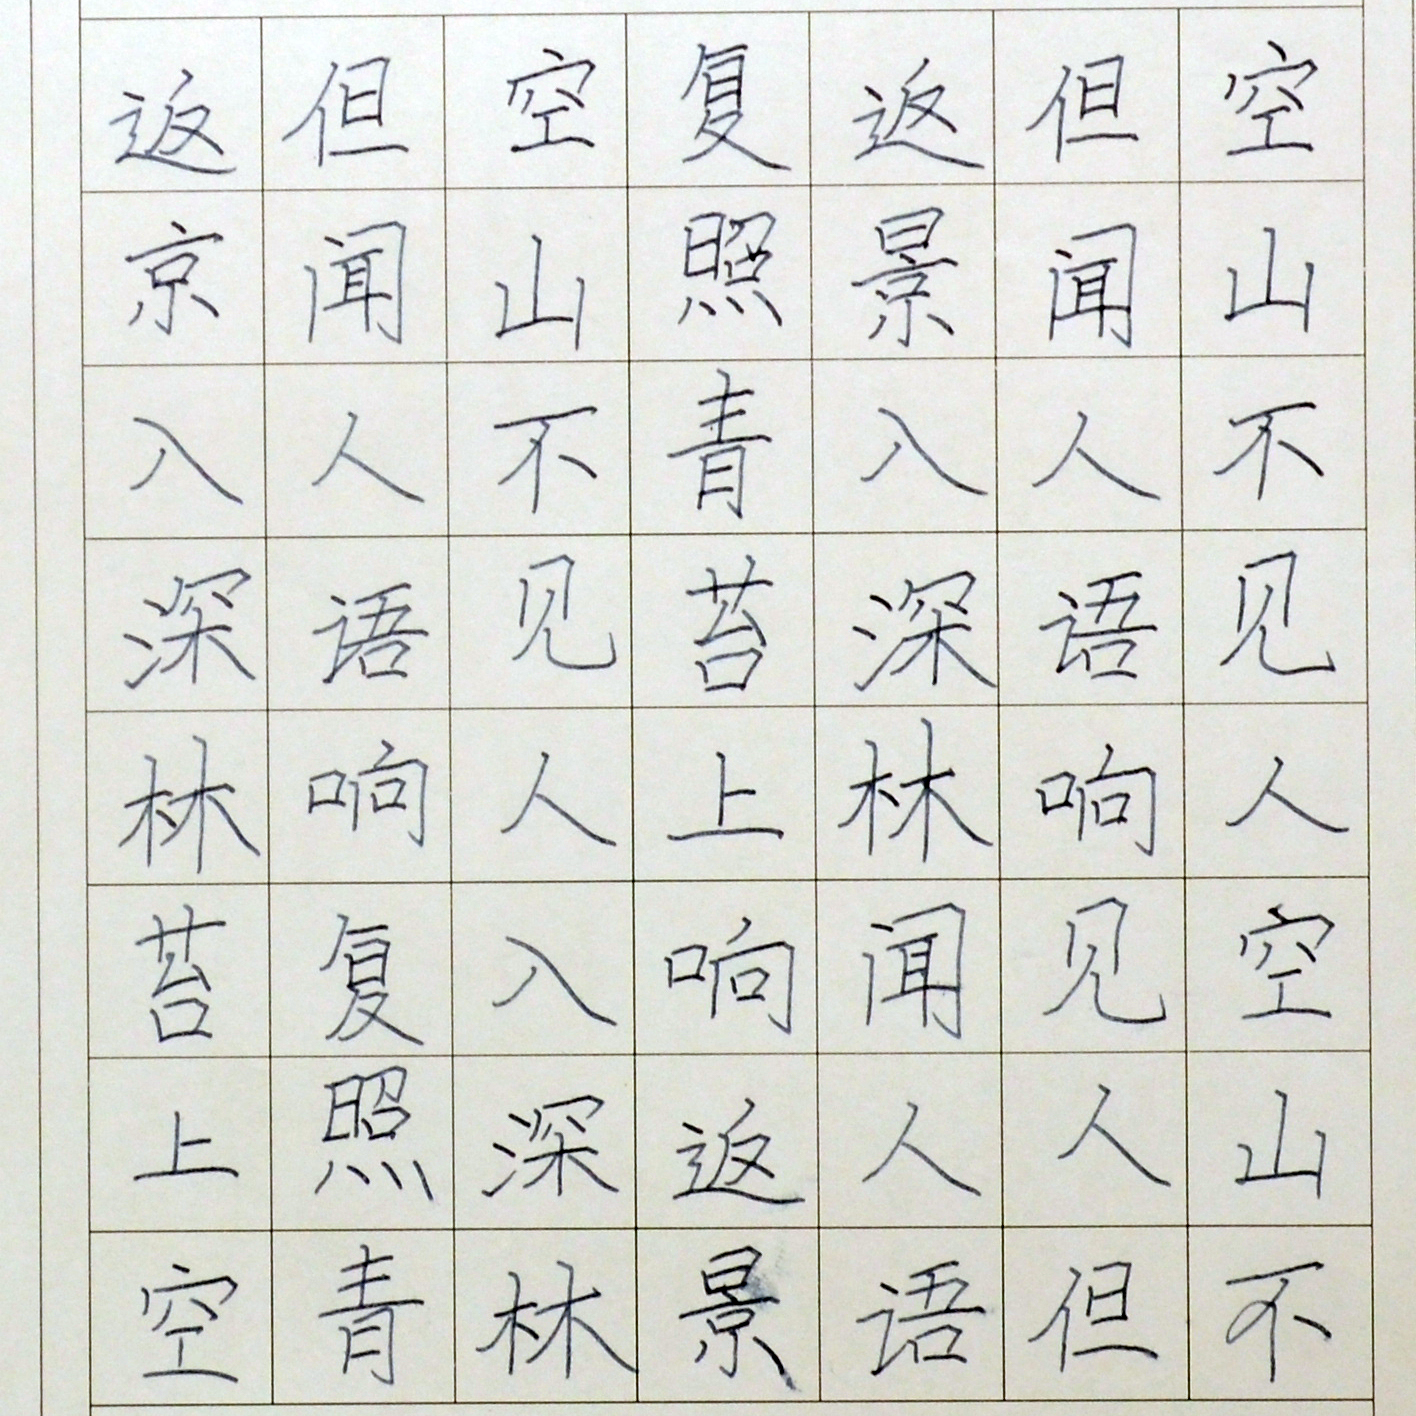 空山不见人空山不
但闻人语响见人但
返景入深林闻人语
复照青苔上响返景
空山不见人入深林
但闻人语响复照青
返京入深林苔上空